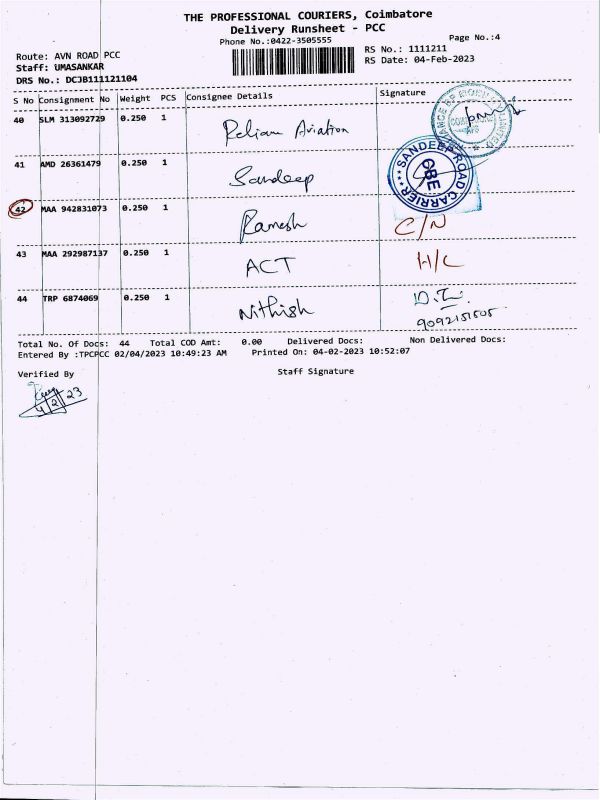 THE PROFESSIONAL COURIERS, Coimbatore
Delivery Runsheet - PCC
Phone No.:0422-3505555
Page No.:4
Route: AVN ROAD PCC
RS No.: 1111211
Staff: UMASANKAR
RS Date: 04-Feb-2023
DRS No.: DCJB111121104
S No Consignment No Weight PCS Consignee Details Signature
40 SLM 313092729 0.250 1 Relian Aviation
41 AMD 26361479 0.250 1 Sandeep
SANDEEP ROAD CARRIER
CBE
42 MAA 942831073 0.250 1 Ramesh C/N
43 MAA 292987137 0.250 1 ACT H/C
44 TRP 6874069 0.250 1 Nithish
9092151505
Total No. Of Docs: 44 Total COD Amt: 0.00 Delivered Docs: Non Delivered Docs:
Entered By :TPCPCC 02/04/2023 10:49:23 AM Printed On: 04-02-2023 10:52:07
Verified By Staff Signature
4/2/23